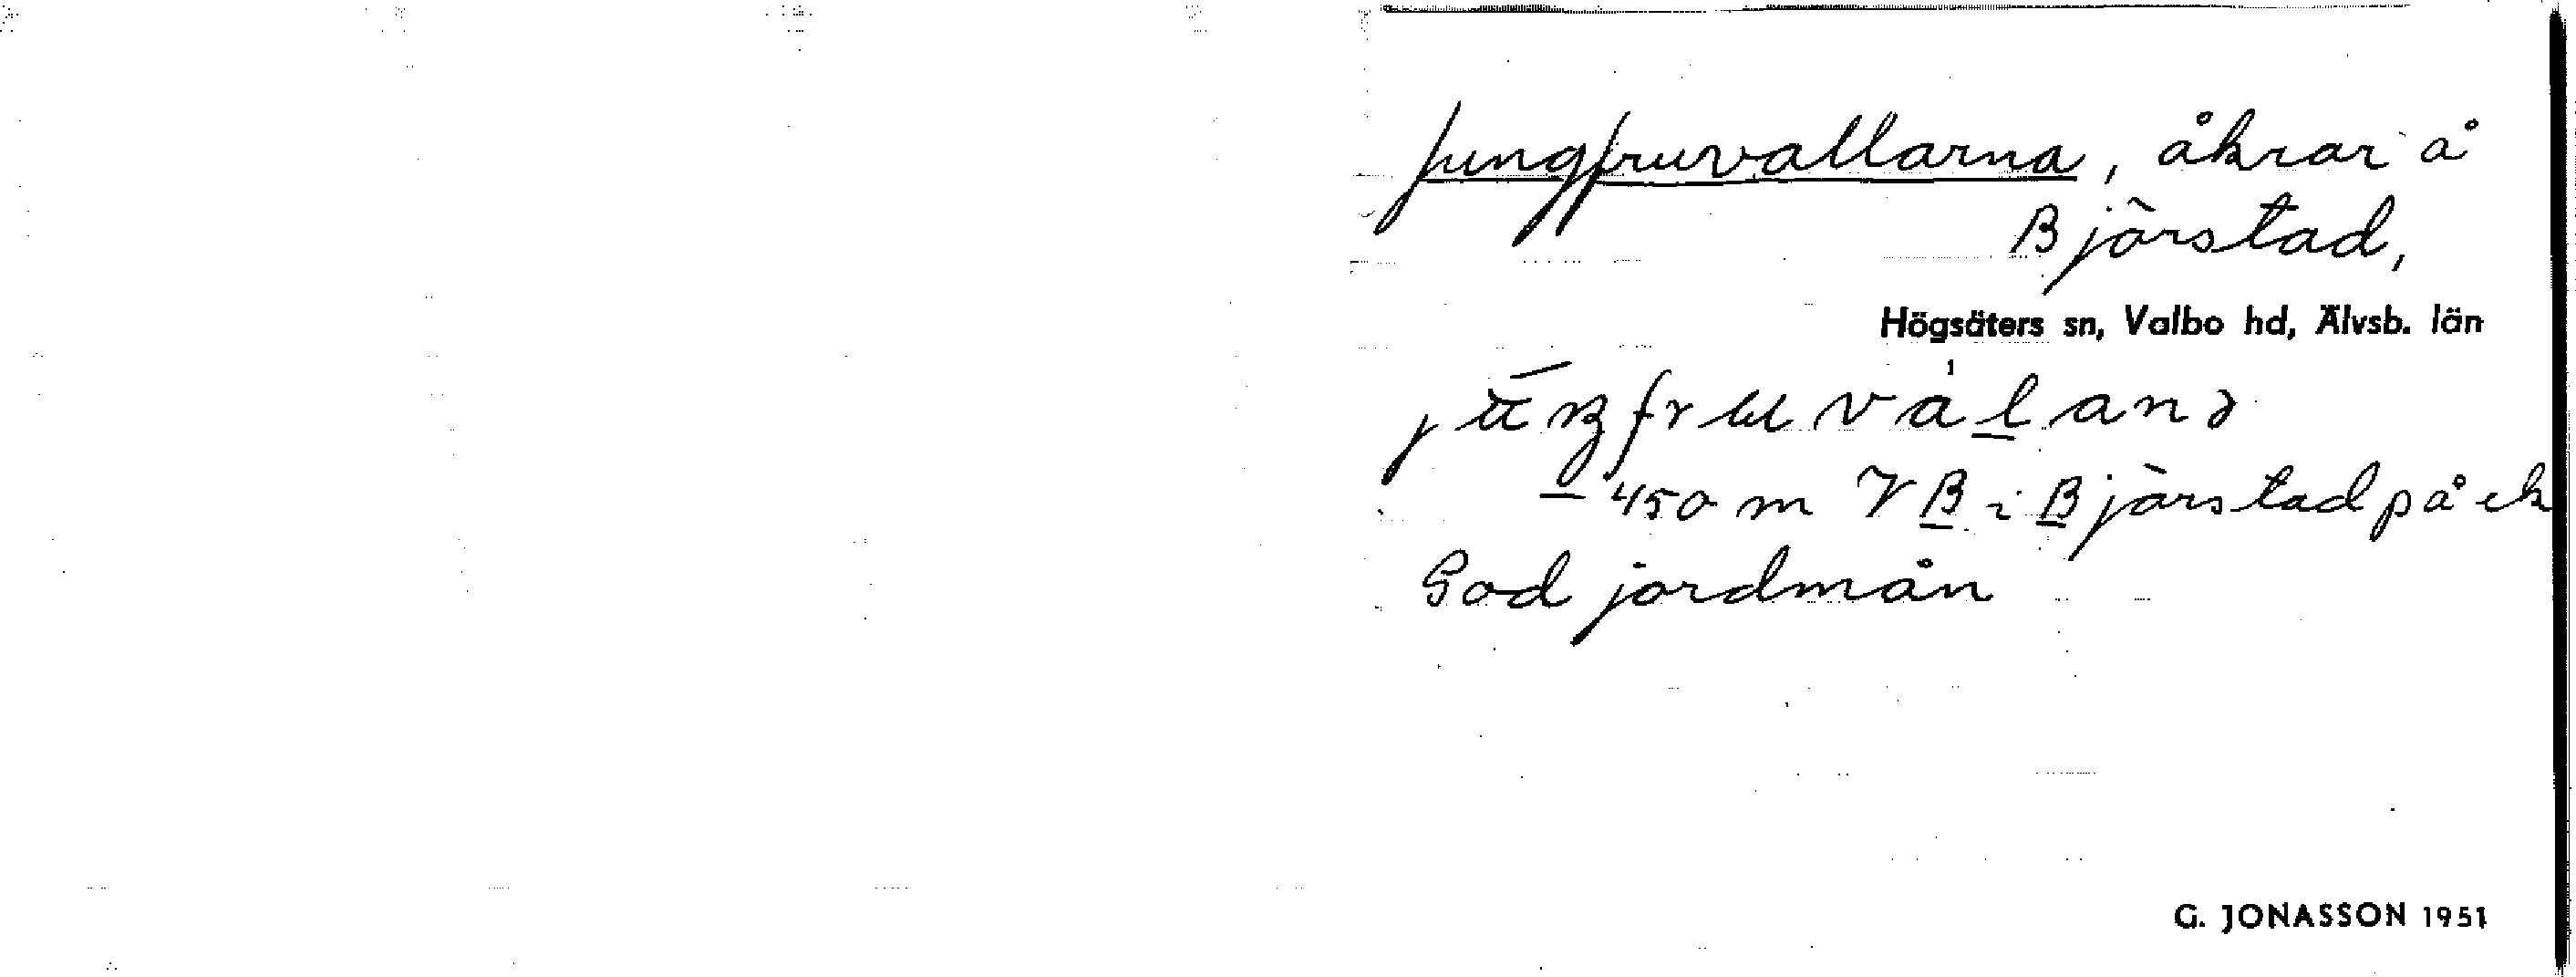 Jungfruvallarna, åkrar å
Bjärstad,
Högsäters sn, Valbo hd, Älvsb. län
450 m V B i Bjärstad på ek
God jordmån
G. JONASSON 1951